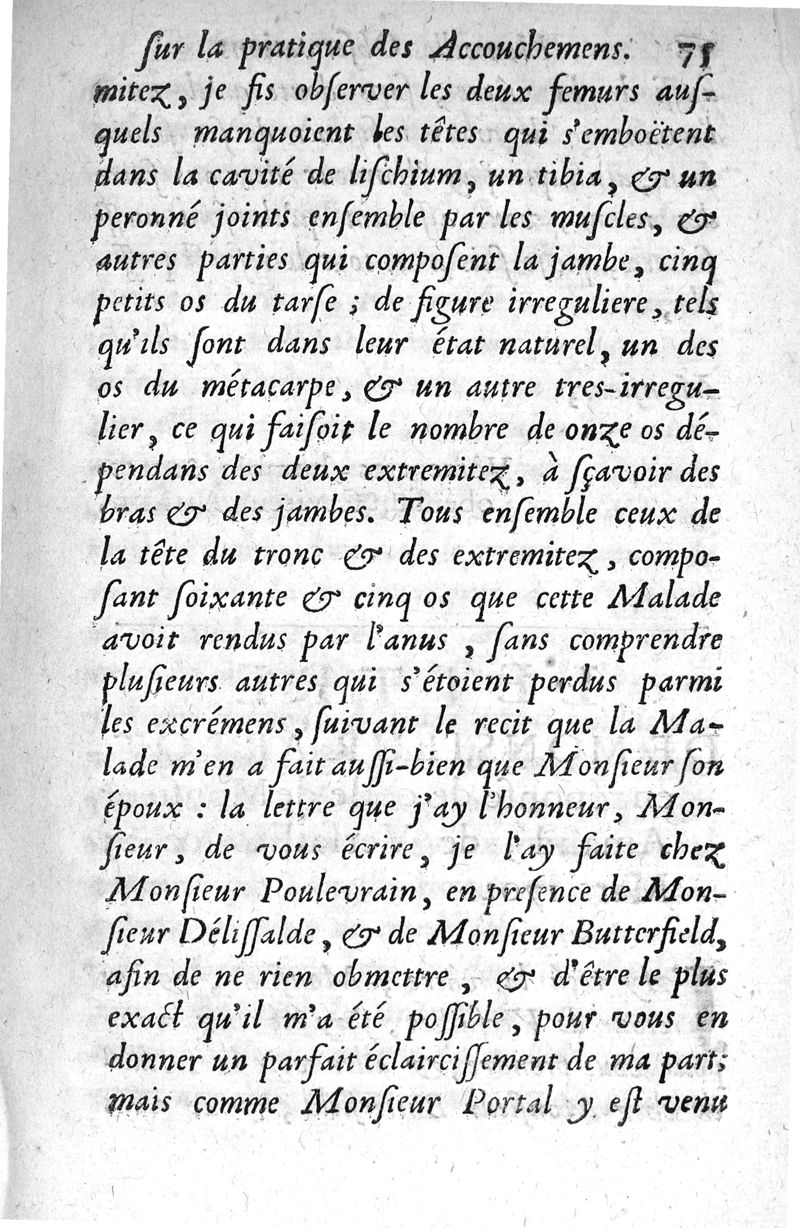 ſur la pratique des Accouchemens. 75
mitez, je fis obſerver les deux femurs auſ-
quels manquoient les têtes qui s'emboëtent
dans la cavité de liſchium, un tibia, & un
peronné joints enſemble par les muſcles, &
autres parties qui compoſent la jambe, cinq
petits os du tarſe ; de figure irreguliere, tels
qu'ils ſont dans leur état naturel, un des
os du métacarpe, & un autre tres-irregu-
lier, ce qui faiſoit le nombre de onze os dé-
pendans des deux extremitez, à ſçavoir des
bras & des jambes. Tous enſemble ceux de
la tête du tronc & des extremitez, compo-
ſant ſoixante & cinq os que cette Malade
avoit rendus par l'anus, ſans comprendre
pluſieurs autres qui s'étoient perdus parmi
les excrémens, ſuivant le recit que la Ma-
lade m'en a fait auſſi-bien que Monſieur ſon
époux : la lettre que j'ay l'honneur, Mon-
ſieur, de vous écrire, je l'ay faite chez
Monſieur Poulevrain, en preſence de Mon-
ſieur Déliſſalde, & de Monſieur Butterfield,
afin de ne rien obmettre, & d'être le plus
exact qu'il m'a été poſſible, pour vous en
donner un parfait éclairciſſement de ma part;
mais comme Monſieur Portal y eſt venu